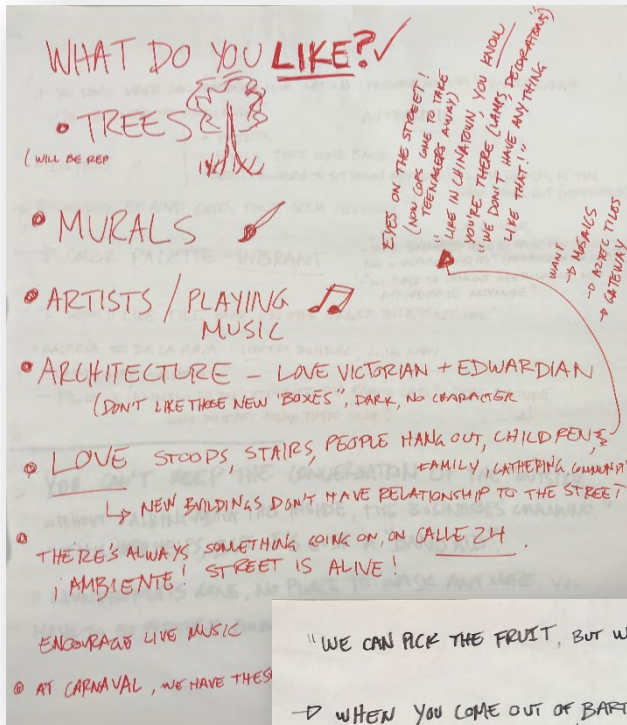 WHAT DO YOU LIKE?✓
• TREES
(WILL BE REP
• MURALS
• ARTISTS / PLAYING
MUSIC
• ARCHITECTURE – LOVE VICTORIAN + EDWARDIAN
(DON'T LIKE THOSE NEW "BOXES", DARK, NO CHARACTER
• LOVE STOOPS, STAIRS, PEOPLE HANG OUT, CHILDREN,
FAMILY, GATHERING,
↳ NEW BUILDINGS DON'T HAVE RELATIONSHIP TO THE STREET
• THERE'S ALWAYS SOMETHING GOING ON, ON CALLE 24.
¡AMBIENTE! STREET IS ALIVE!
ENCOURAGE LIVE MUSIC
• AT CARNAVAL, WE HAVE THES
EYES ON THE STREET!!
(NOW COPS COME TO TAKE
TEENAGERS AWAY)
"LIKE IN CHINATOWN, YOU KNOW
YOU'RE THERE (LAMPS, DECORATIONS)
WE DON'T HAVE ANYTHING
LIKE THAT!"
WANT
→ MOSAICS
→ AZTEC TILES
→ GATEWAY
"WE CAN PICK THE FRUIT, BUT W
→ WHEN YOU COME OUT OF BART